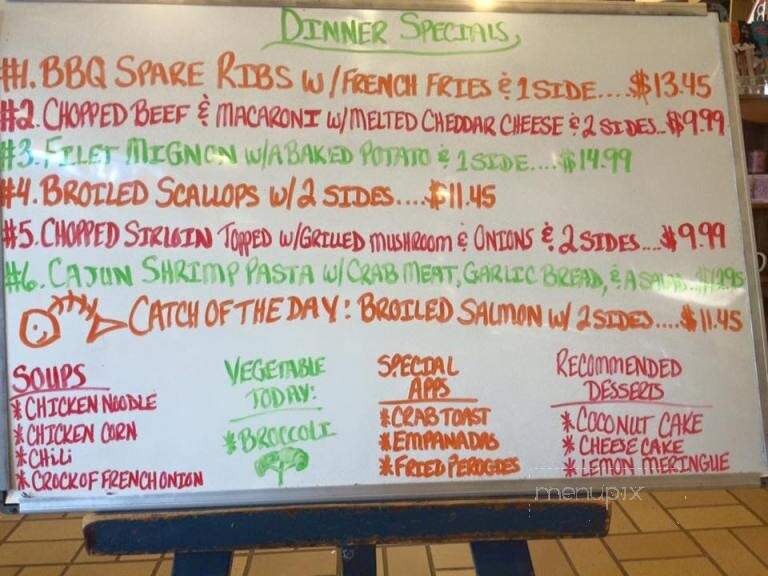 DINNER SPECIALS
#1. BBQ SPARE RIBS W/FRENCH FRIES & 1 SIDE....$13.45
#2. CHOPPED BEEF & MACARONI W/MELTED CHEDDAR CHEESE & 2 SIDES..$9.99
#3. FILET MIGNON W/A BAKED POTATO & 1 SIDE....$14.99
#4. BROILED SCALLOPS W/2 SIDES....$11.45
#5. CHOPPED SIRLOIN TOPPED W/GRILLED MUSHROOM & ONIONS & 2 SIDES...$9.99
#6. CAJUN SHRIMP PASTA W/CRAB MEAT, GARLIC BREAD, & A SALAD...$12.95
CATCH OF THE DAY: BROILED SALMON W/ 2 SIDES....$11.45
SOUPS
*CHICKEN NOODLE
*CHICKEN CORN
*CHILI
*CROCK OF FRENCH ONION
VEGETABLE
TODAY:
*BROCCOLI
SPECIAL
APPS
*CRAB TOAST
*EMPANADAS
*FRIED PEROGIES
RECOMMENDED
DESSERTS
*COCONUT CAKE
*CHEESE CAKE
*LEMON MERINGUE
menupix